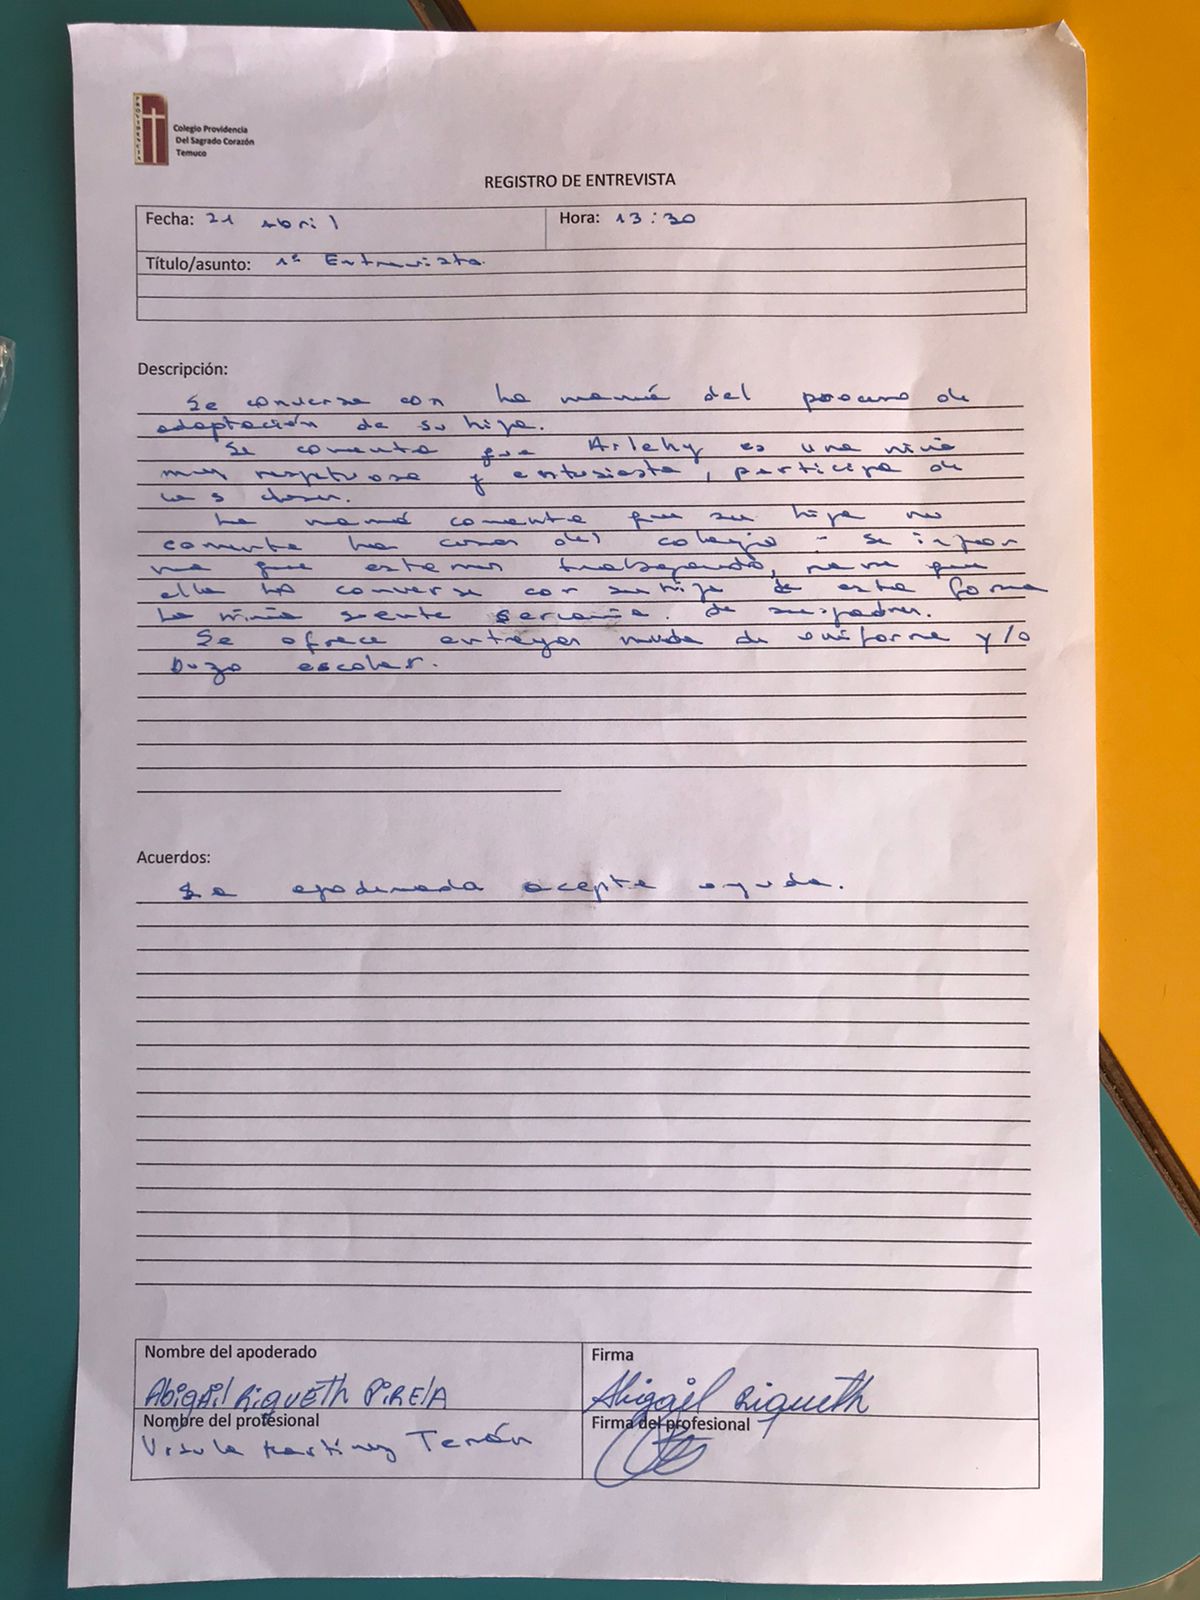 PROVIDENCIA
Colegio Providencia
Del Sagrado Corazón
Temuco
REGISTRO DE ENTREVISTA
Fecha: 21 Abril
Hora: 13:30
Título/asunto: 1ª Entrevista.
Descripción:
Se conversa con la mamá del proceso de
adaptación de su hija.
Se comenta que Arlehy es una niña
muy respetuosa y entusiasta, participa de
las clases.
La mamá comenta que su hija no
comenta las cosas del colegio - se infor
ma que estemos trabajando, para que
ella lo converse con su hija de esta forma
la niña siente cercanía de sus padres.
Se ofrece entregar muda de uniforme y/o
buzo escolar.
Acuerdos:
La apoderada acepta ayuda.
Nombre del apoderado
Firma
Abigail Riqueth Pirela
Abigail Riqueth
Nombre del profesional
Firma del profesional
Ursula Martinez Terán